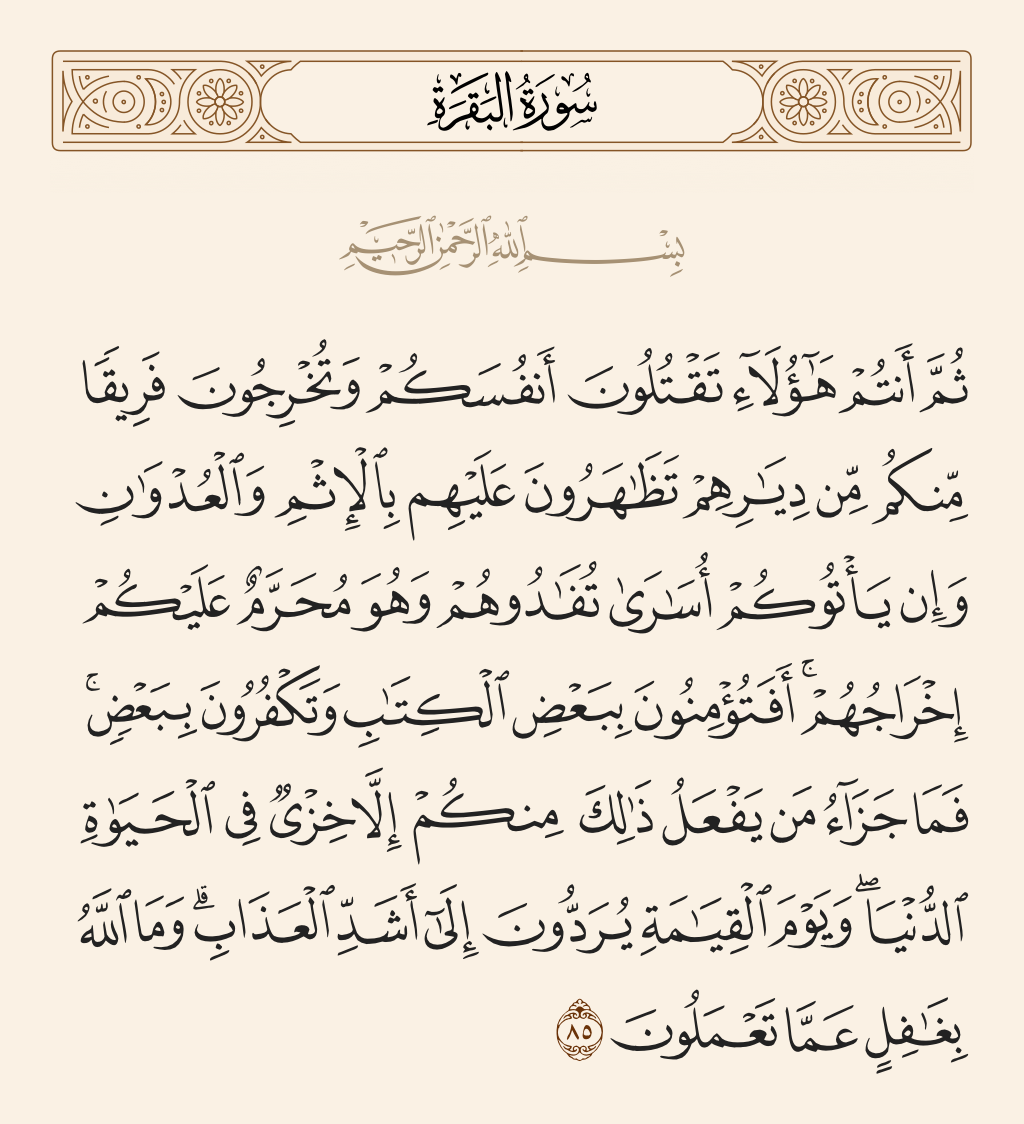 سُورَةُ البَقَرَةِ
بِسْمِ ٱللَّهِ ٱلرَّحْمَٰنِ ٱلرَّحِيمِ
ثُمَّ أَنتُمْ هَٰٓؤُلَآءِ تَقْتُلُونَ أَنفُسَكُمْ وَتُخْرِجُونَ فَرِيقًا
مِّنكُم مِّن دِيَٰرِهِمْ تَظَٰهَرُونَ عَلَيْهِم بِٱلْإِثْمِ وَٱلْعُدْوَٰنِ
وَإِن يَأْتُوكُمْ أُسَٰرَىٰ تُفَٰدُوهُمْ وَهُوَ مُحَرَّمٌ عَلَيْكُمْ
إِخْرَاجُهُمْ ۚ أَفَتُؤْمِنُونَ بِبَعْضِ ٱلْكِتَٰبِ وَتَكْفُرُونَ بِبَعْضٍ ۚ
فَمَا جَزَآءُ مَن يَفْعَلُ ذَٰلِكَ مِنكُمْ إِلَّا خِزْىٌ فِى ٱلْحَيَوٰةِ
ٱلدُّنْيَا ۖ وَيَوْمَ ٱلْقِيَٰمَةِ يُرَدُّونَ إِلَىٰٓ أَشَدِّ ٱلْعَذَابِ ۗ وَمَا ٱللَّهُ
بِغَٰفِلٍ عَمَّا تَعْمَلُونَ ٨٥